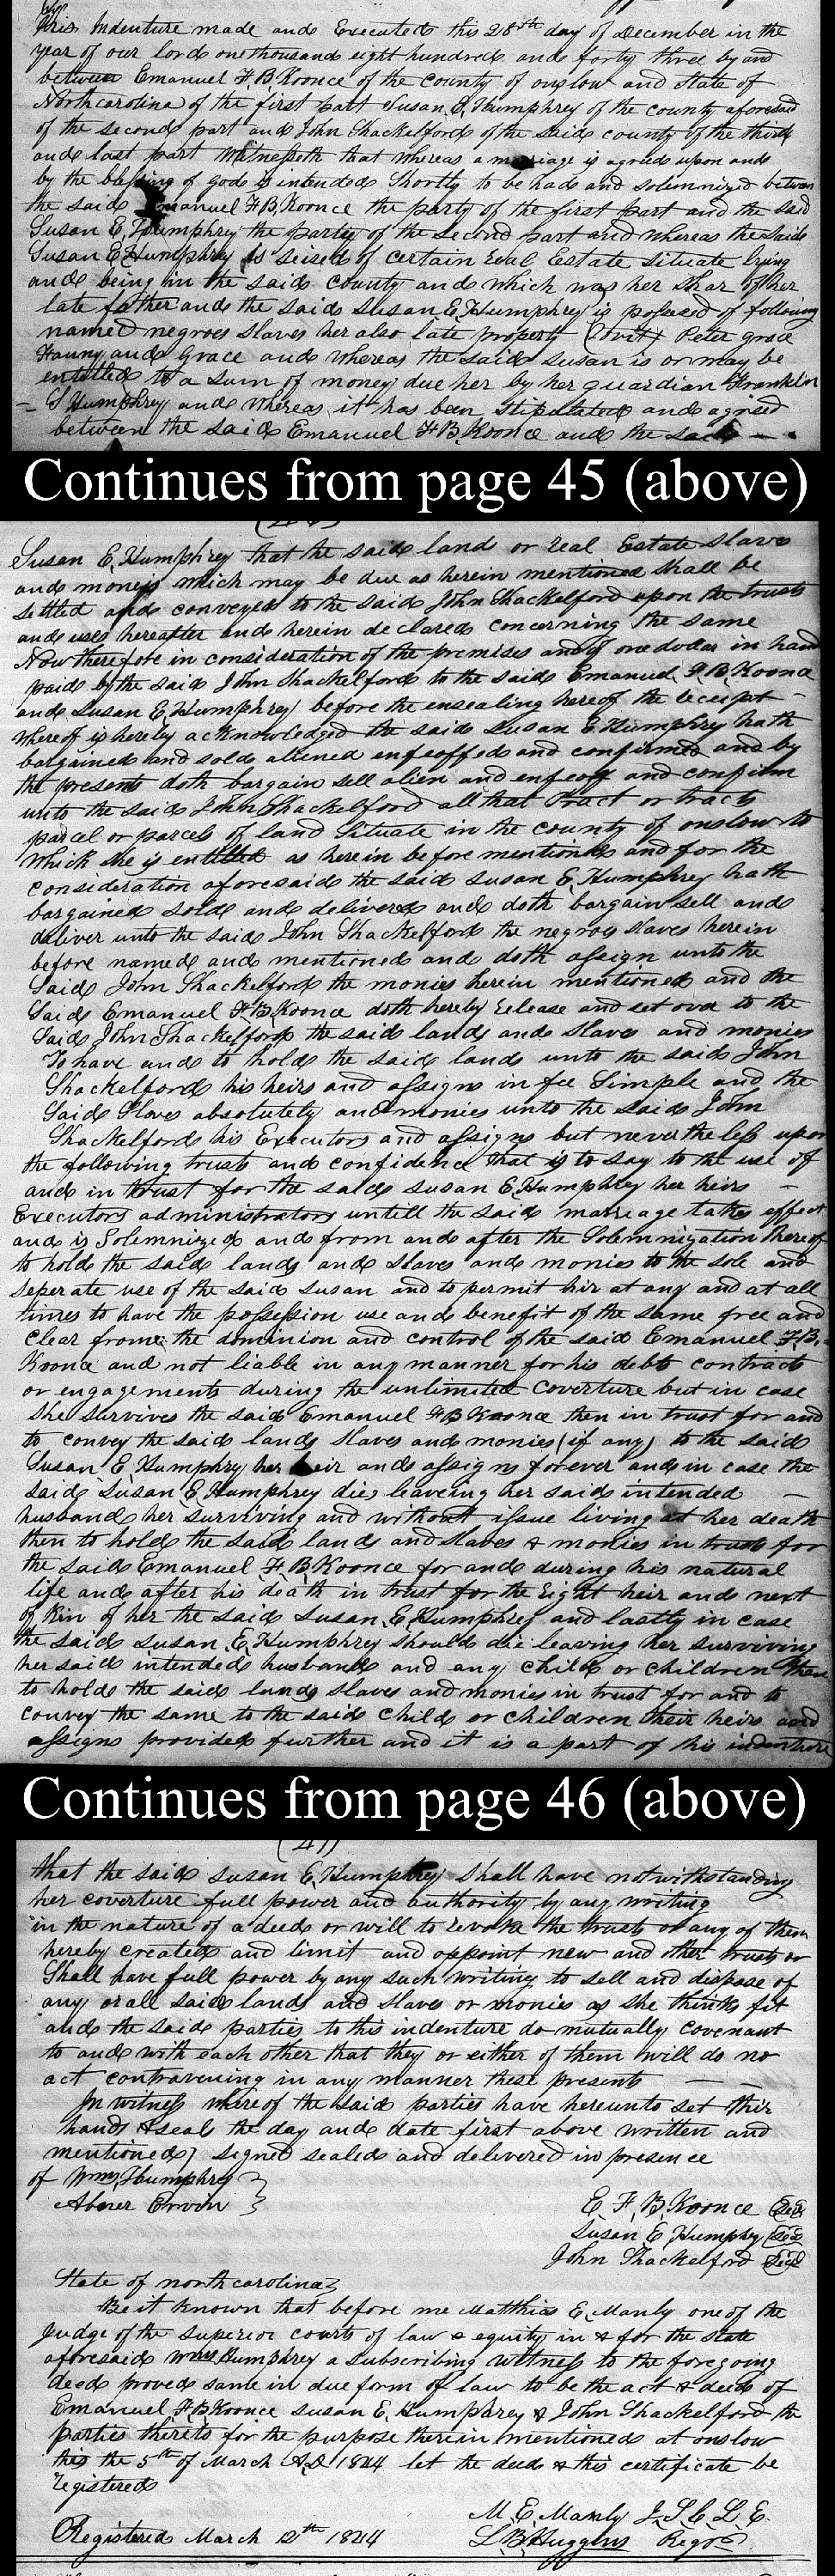 This Indenture made and Executed this 28th day of December in the
year of our lord one thousand eight hundred and forty three by and
between Emanuel F. B. Koonce of the county of onslow and State of
North carolina of the first part Susan E. Humphrey of the county aforesaid
of the second part and John Shackelford of the said county of the third
and last part Witnesseth that whereas a mariage is agreed upon and
by the blessing of god is intended Shortly to be had and solemnized between
the said Emanuel F. B. Koonce the party of the first part and the said
Susan E. Humphrey the party of the second part and whereas the said
Susan E. Humphrey is seised of certain real Estate situate lying
and being in the said county and which was her Shar of her
late father and the said Susan E. Humphrey is possessed of following
named negroes slaves her also late property (towit) Peter grace
Fanny and Grace and whereas the said Susan is or may be
entitled to a sum of money due her by her guardian Franklin
S Humphrey and whereas it has been Stipulated and agreed
between the said Emanuel F. B. Koonce and the said
Continues from page 45 (above)
Susan E. Humphrey that the said land or real Estate slaves
and moneys which may be due as herein mentioned shall be
settled and conveyed to the said John Shackelford upon the trusts
and uses hereafter and herein declared concerning the same
Now therefore in consideration of the premises and of one dollar in hand
paid by the said John Shackelford to the said Emanuel F. B. Koonce
and Susan E. Humphrey before the ensealing hereof the receipt
whereof is hereby acknowledged the said Susan E. Humphrey hath
bargained and sold aliened enfeoffed and confirmed and by
the presents doth bargain sell alien and enfeoff and confirm
unto the said John Shackelford all that Tract or tracts
parcel or parcels of land Situate in the county of onslow to
which she is entitled as herein before mentioned and for the
consideration aforesaid the said Susan E. Humphrey hath
bargained sold and delivered and doth bargain sell and
deliver unto the said John Shackelford the negroe slaves herein
before named and mentioned and doth assign unto the
Said John Shackelford the monies herein mentioned and the
Said Emanuel F. B. Koonce doth hereby release and set over to the
Said John Shackelford the said lands and slaves and monies
To have and to hold the said lands unto the said John
Shackelford his heirs and assigns in fee Simple and the
Said Slaves absolutely and monies unto the said John
Shackelford his Executors and assigns but nevertheless upon
the following trusts and confidence that is to say to the use of
and in trust for the said Susan E. Humphrey her heirs
Executors administrators untill the said marriage takes effect
and is Solemnized and from and after the Solemnization thereof
to hold the said lands and slaves and monies to the sole and
seperate use of the said Susan and to permit hir at any and at all
times to have the possession use and benefit of the same free and
clear frome the dominion and control of the said Emanuel F. B.
Koonce and not liable in any manner for his debts contracts
or engagements during the unlimited coverture but in case
She survives the said Emanuel F B Koonce then in trust for and
to convey the said lands slaves and monies (if any) to the said
Susan E. Humphrey her heir and assigns forever and in case the
said Susan E. Humphrey dies leaveing her said intended
husband her surviving and without issue living at her death
then to hold the said lands and slaves & monies in trust for
the said Emanuel F. B. Koonce for and during his natural
life and after his death in trust for the right heir and next
of kin of her the said Susan E. Humphrey and lastly in case
the said Susan E. Humphrey should die leaving her surviving
her said intended husband and any child or children then
to holde the said lands slaves and monies in trust for and to
convey the same to the said child or children their heirs and
assigns provided further and it is a part of this indenture
Continues from page 46 (above)
(47)
that the said Susan E. Humphrey Shall have notwithstanding
her coverture full power and authority by any writing
in the nature of a deed or will to revoke the trusts or any of them
hereby created and limit and appoint new and other trusts or
Shall have full power by any such writing to sell and dispose of
any or all said lands and slaves or monies as she thinks fit
and the said parties to this indenture do mutually covenant
to and with each other that they or either of them will do no
act contravening in any manner these presents
In witness whereof the said parties have hereunto set thir
hands & seals the day and date first above written and
mentioned signed sealed and delivered in presence
of Wm Humphrey
Abner Ervin
E. F. B. Koonce Seal
Susan E. Humphrey Seal
John Shackelford Seal
State of north carolina
Be it Known that before me Matthias E. Manly one of the
Judge of the Superior courts of law & equity in & for the state
aforesaid Wm Humphrey a subscribing witness to the foregoing
deed proved same in due form of law to be the act & deed of
Emanuel F. B Koonce Susan E. Humphrey & John Shackelford the
parties thereto for the purpose therein mentioned at onslow
this the 5th of March A.D 1844 let the deed & this certificate be
registered
M. E. Manly J. S. C. L. E.
Registered March 12th 1844 L B Huggins Regr